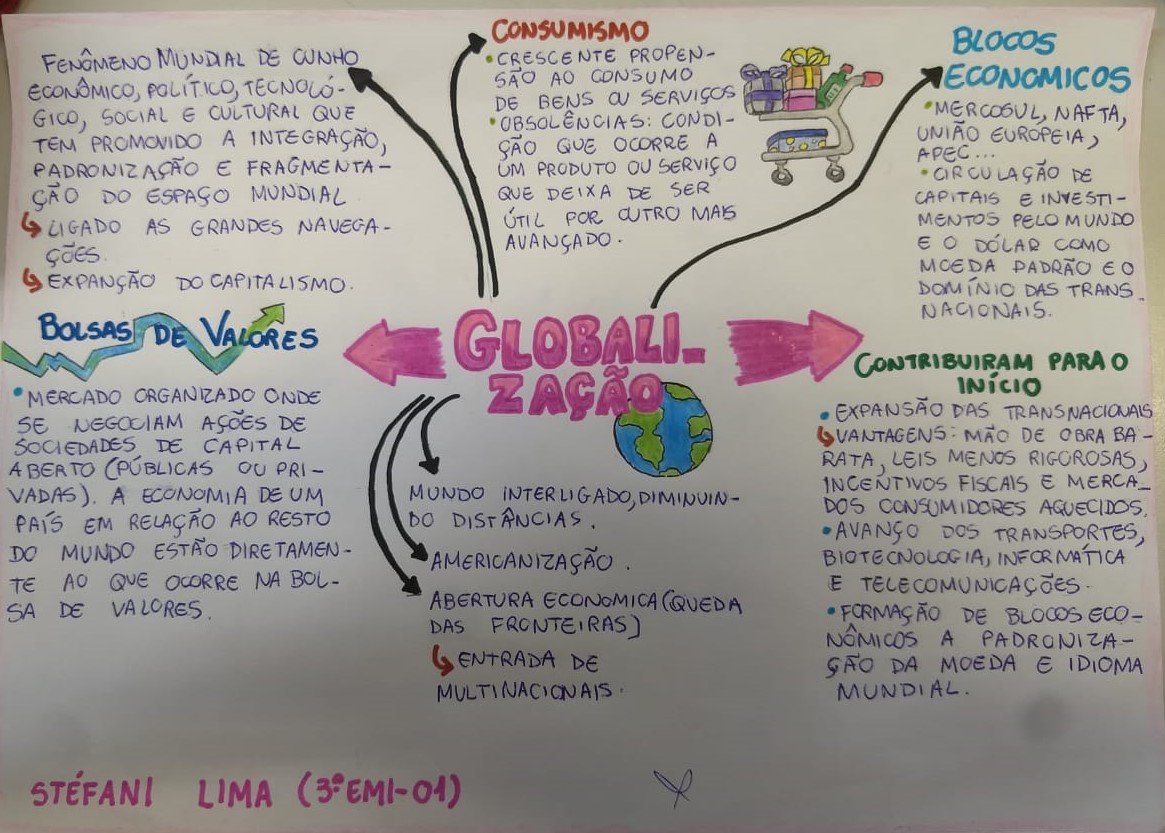 FENÔMENO MUNDIAL DE CUNHO
ECONÔMICO, POLÍTICO, TECNOLÓ-
GICO, SOCIAL E CULTURAL QUE
TEM PROMOVIDO A INTEGRAÇÃO,
PADRONIZAÇÃO E FRAGMENTA-
ÇÃO DO ESPAÇO MUNDIAL
LIGADO AS GRANDES NAVEGA-
ÇÕES.
EXPANÇÃO DO CAPITALISMO.
CONSUMISMO
• CRESCENTE PROPEN-
SÃO AO CONSUMO
DE BENS OU SERVIÇOS
• OBSOLÊNCIAS: CONDI-
ÇÃO QUE OCORRE A
UM PRODUTO OU SERVIÇO
QUE DEIXA DE SER
ÚTIL POR OUTRO MAIS
AVANÇADO.
BLOCOS
ECONOMICOS
• MERCOSUL, NAFTA,
UNIÃO EUROPEIA,
APEC...
• CIRCULAÇÃO DE
CAPITAIS E INVESTI-
MENTOS PELO MUNDO
E O DÓLAR COMO
MOEDA PADRÃO E O
DOMÍNIO DAS TRANS-
NACIONAIS.
GLOBALI-
ZAÇÃO
BOLSAS DE VALORES
• MERCADO ORGANIZADO ONDE
SE NEGOCIAM AÇÕES DE
SOCIEDADES DE CAPITAL
ABERTO (PÚBLICAS OU PRI-
VADAS). A ECONOMIA DE UM
PAÍS EM RELAÇÃO AO RESTO
DO MUNDO ESTÃO DIRETAMEN-
TE AO QUE OCORRE NA BOL-
SA DE VALORES.
MUNDO INTERLIGADO, DIMINUIN-
DO DISTÂNCIAS.
AMERICANIZAÇÃO.
ABERTURA ECONOMICA (QUEDA
DAS FRONTEIRAS)
ENTRADA DE
MULTINACIONAIS.
CONTRIBUIRAM PARA O
INÍCIO
• EXPANSÃO DAS TRANSNACIONAIS
VANTAGENS: MÃO DE OBRA BA-
RATA, LEIS MENOS RIGOROSAS,
INCENTIVOS FISCAIS E MERCA-
DOS CONSUMIDORES AQUECIDOS.
• AVANÇO DOS TRANSPORTES,
BIOTECNOLOGIA, INFORMÁTICA
E TELECOMUNICAÇÕES.
• FORMAÇÃO DE BLOCOS ECO-
NÔMICOS A PADRONIZA-
ÇÃO DA MOEDA E IDIOMA
MUNDIAL.
STÉFANI LIMA (3º EMI-01)